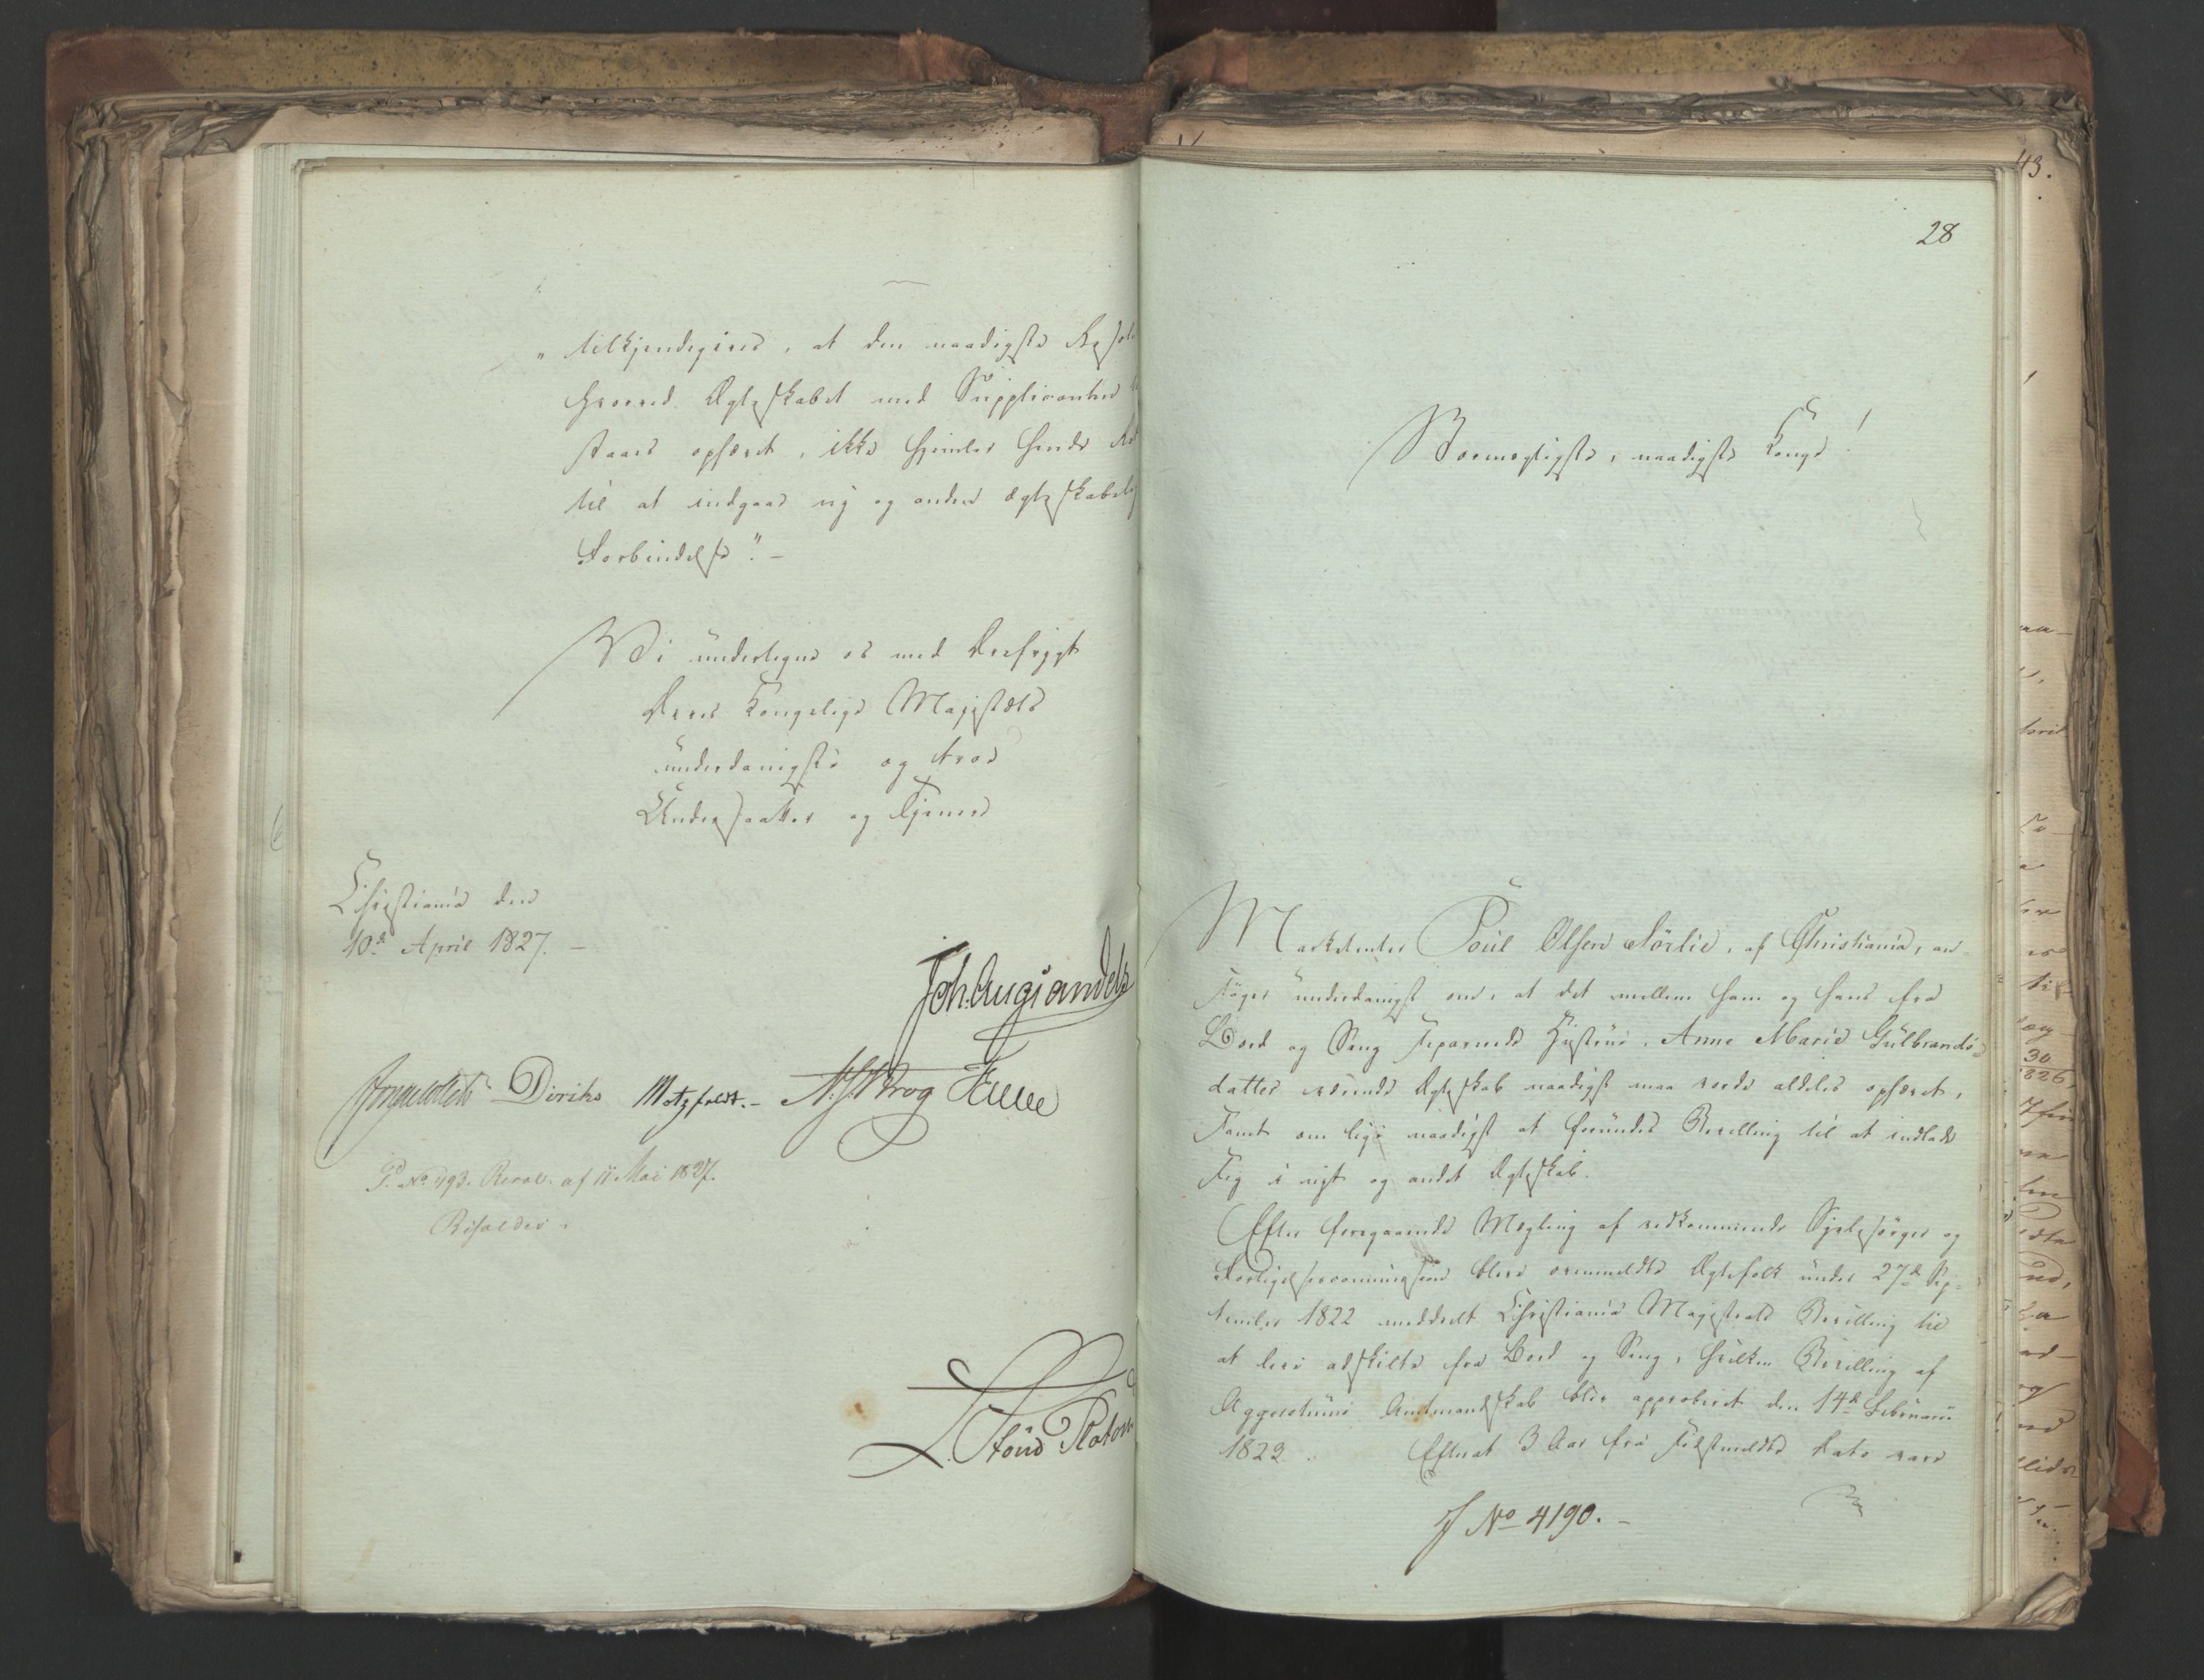 „tilkjendegives, at den naadigste Resolu
hvorved Ægteskabet med Supplicantinden
staaer ophævet, ikke hjemler hende Ret
til at indgaae ny og anden ægteskabelig
Forbindelse". –
Vi undertegne os med Ærefrygt
Deres Kongelige Majestæts
underdanigste og troe
Undersaatter og Tjenere
Christiania den
10de April 1827. –
Joh. Aug: Sandels
Diriks Motzfeldt. – Krog
P. No 493. Resol. af 11 Mai 1827.
Bifaldes.
L. Stoud Platou
43.
28
Stormægtigste, naadigste Konge!
Marketenter Poul Olsen Sörlie, af Christiania, an-
söger underdanigst om, at det mellem ham og hans fra
Bord og Seng separerede Hustrue, Anne Marie Gulbrands-
datter værende Ægteskab naadigst maa vorde aldeles ophævet,
samt om lige naadigst at forundes Bevilling til at indlade
sig i nyt og andet Ægteskab.
Efter foregaaende Mægling af vedkommende Sjelesörger og
Forligelsescommission bleve ovenmeldte Ægtefolk under 27de Sep-
tember 1822 meddeelt Christiania Magistrats Bevilling til
at leve adskilte fra Bord og Seng, hvilken Bevilling af
Aggershuus Amtmandskab blev approberet den 14de Februarii
1823. Efterat 3 Aar fra sidstmeldte Dato vare
J No 4190. –